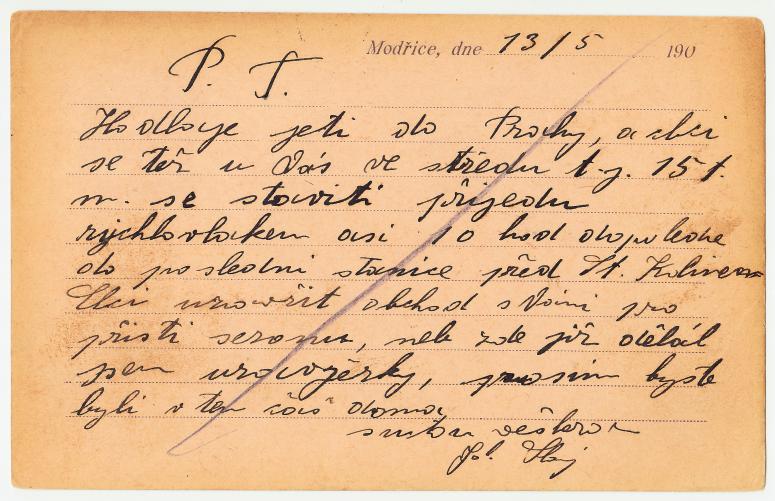 Modřice, dne 13/5 190
P. T.
Hodlaje jeti do Prahy, a chci
se též u Vás ve středu t.j. 15 t.
m. se staviti přijedu
rychlovlakem asi 10 hod dopoledne
do poslední stanice před St. Kolinem
Chci uzavřit obchod s Vámi pro
přisti sezonu, neb zde již dělal
jsem uzavěrky, prosim byste
byli v ten čas doma,